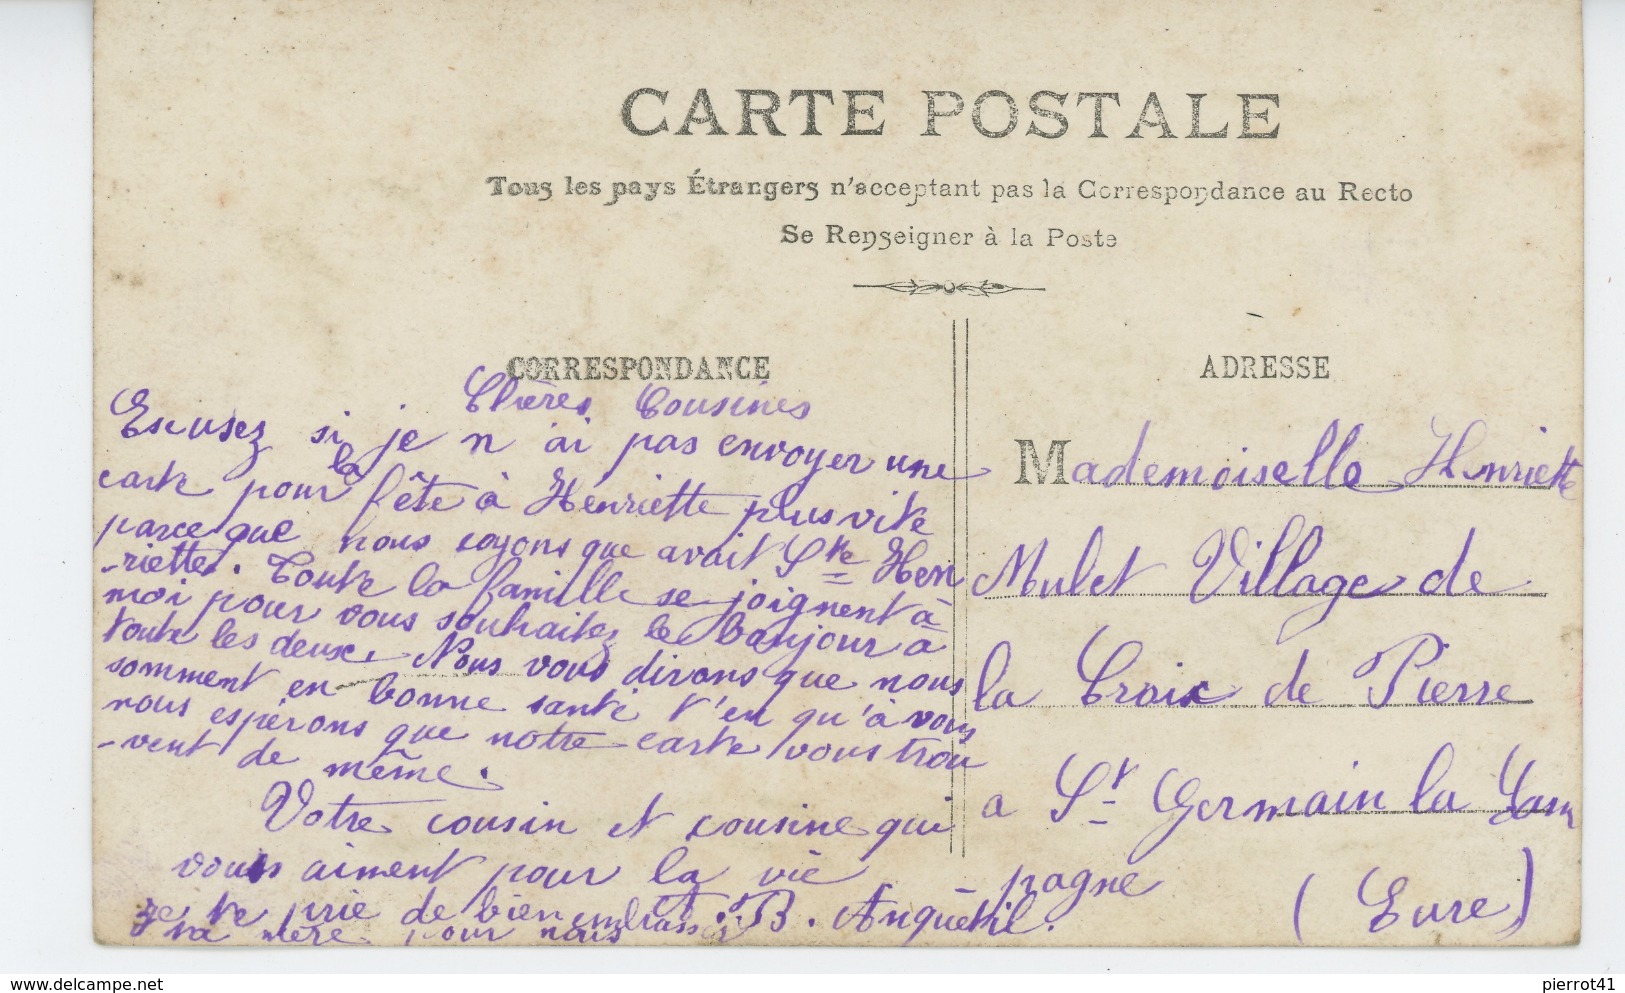 CARTE POSTALE
Tous les pays Étrangers n'acceptant pas la Correspondance au Recto
Se Renseigner à la Poste
CORRESPONDANCE
Chères Cousines
Escusez si je n'ai pas envoyer une
carte pour la fête à Henriette plus vite
parce que nous soyons que avait Ste Hen
-riette. Toute la famille se joignent à
moi pour vous souhaitez le bonjour à
toute les deux. Nous vous dirons que nous
somment en bonne santé t'en qu'à vous
nous espérons que notre carte vous trou
-vent de même.
Votre cousin et cousine qui
vous aiment pour la vie
A. B. Anquetil.
Je te prie de bien embrasser
ta mère pour nous
ADRESSE
Mademoiselle Henriette
Mulet Village de
la Croix de Pierre
a St Germain la Cam
pagne
(Eure)
www.delcampe.net
pierrot41